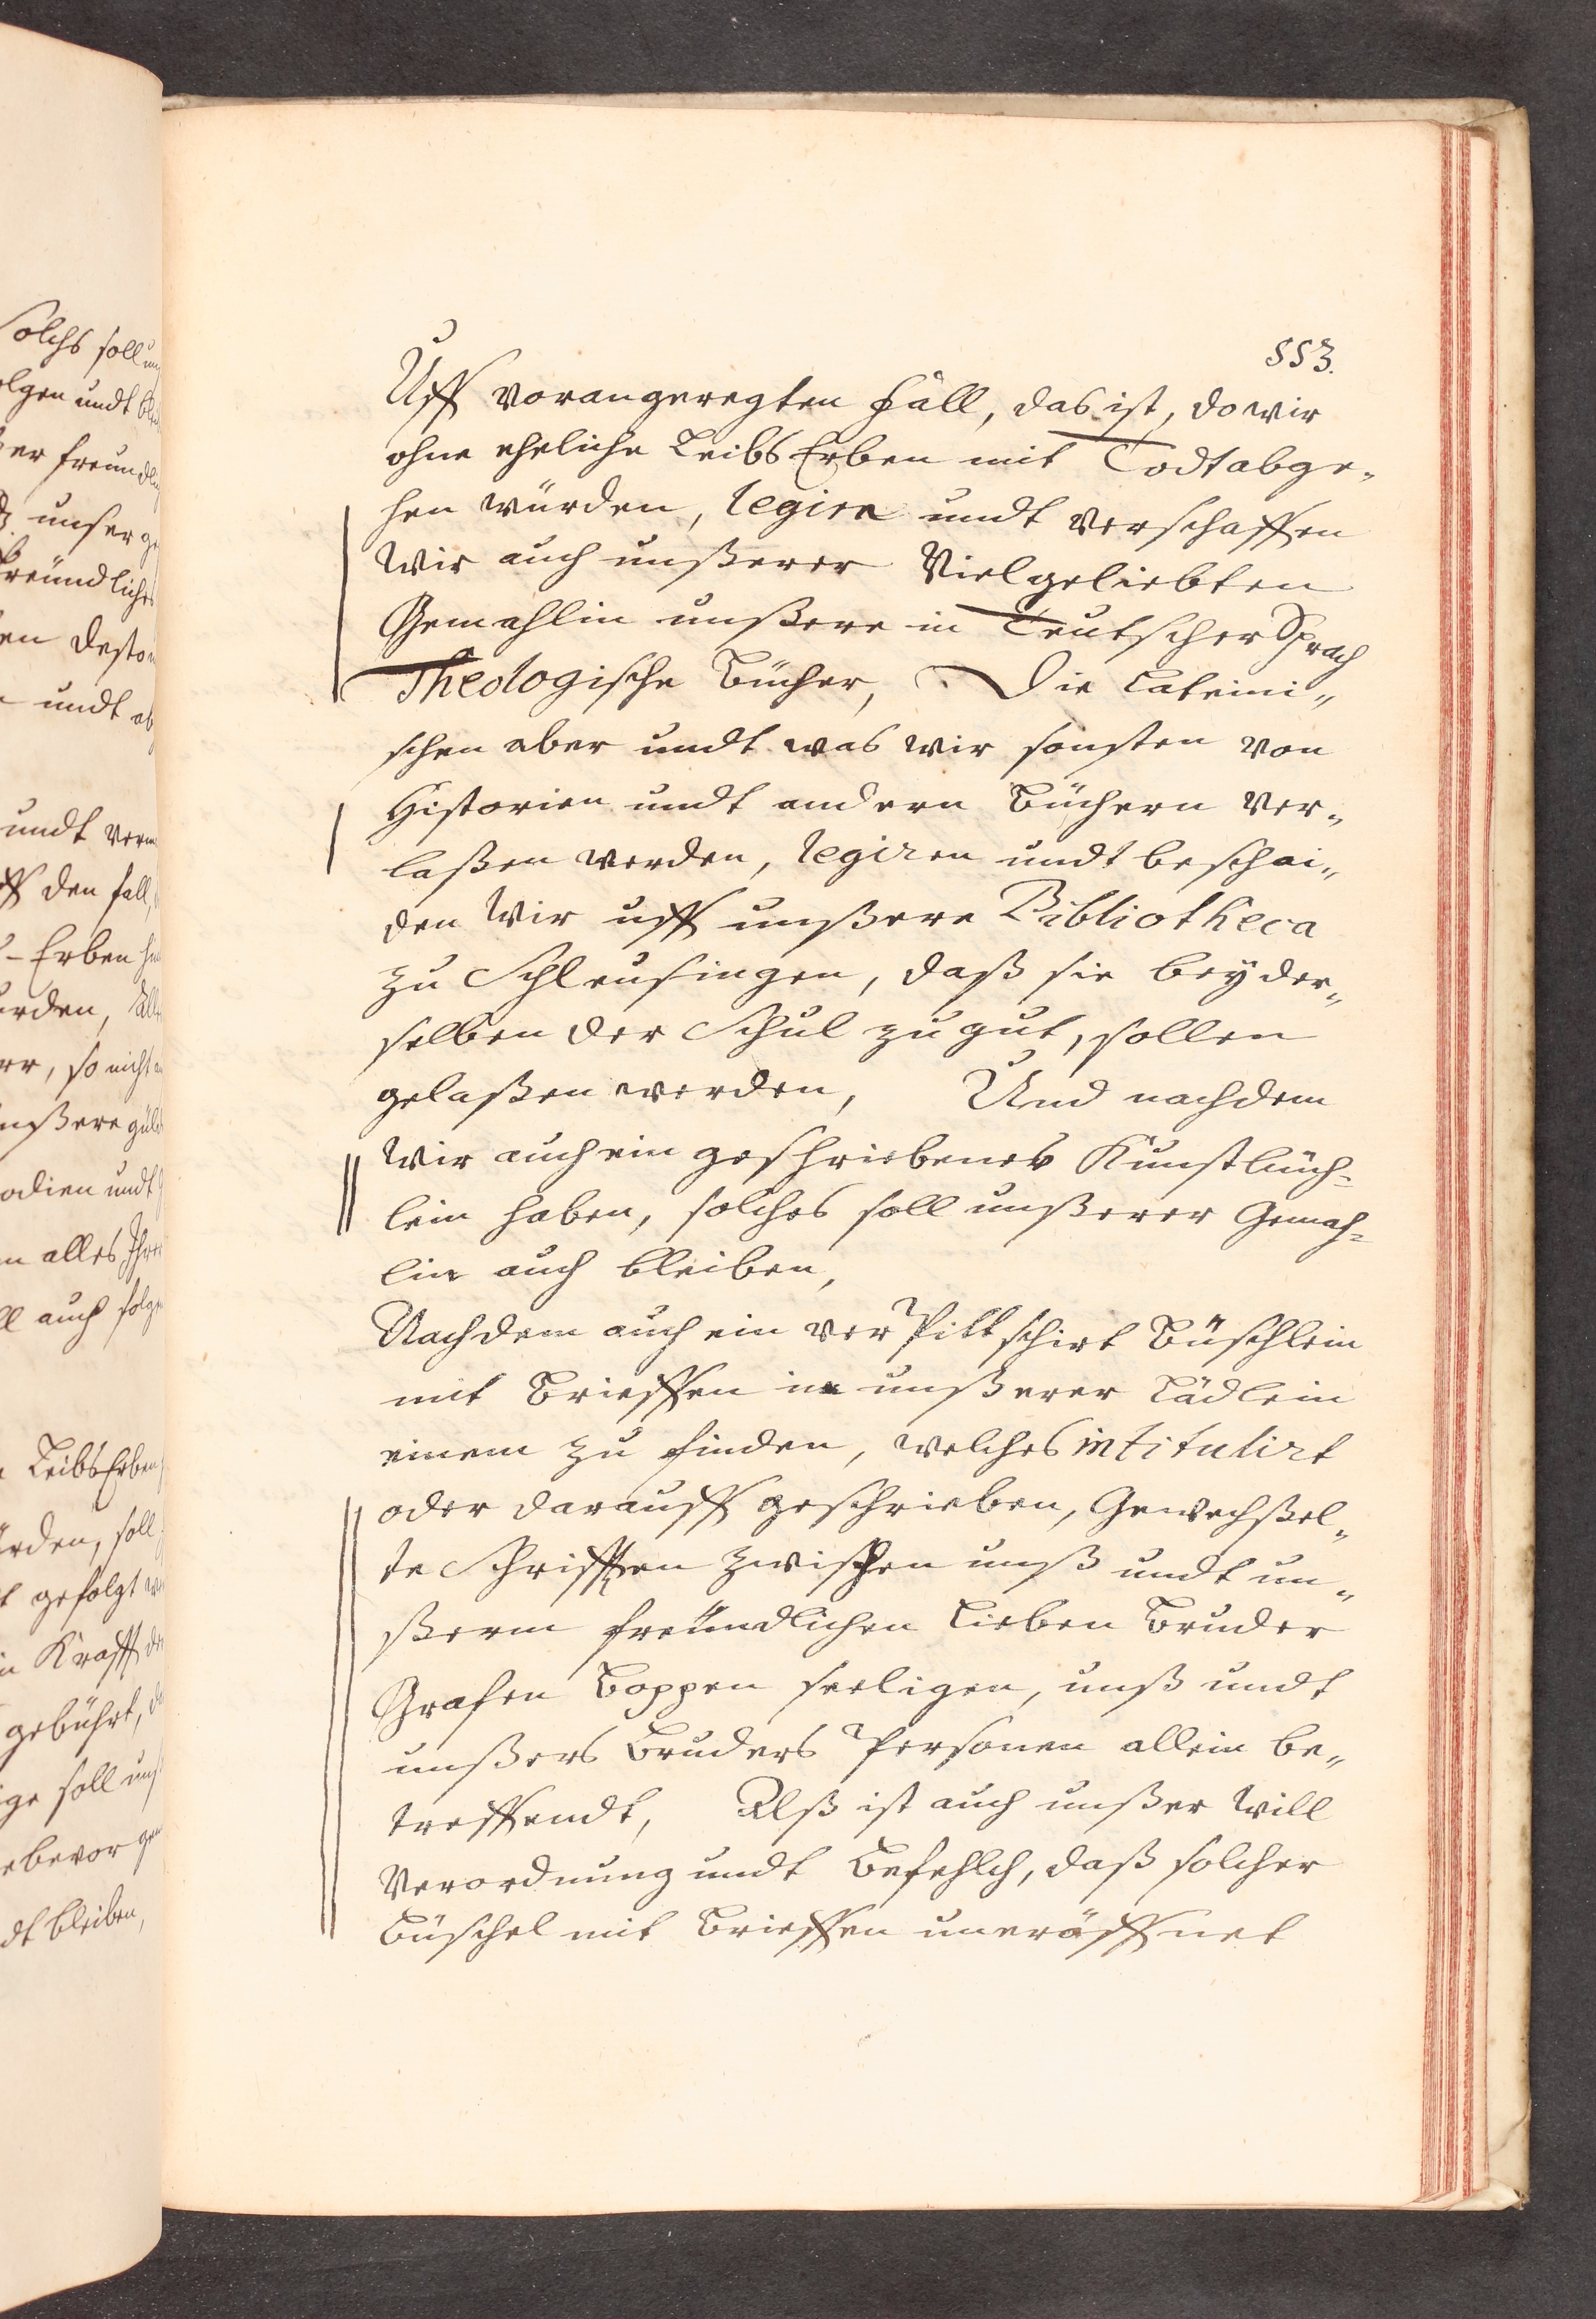 553.
Uff vorangeregten Fall, das ist, do wir
ohne eheliche Leibs Erben mit Todt abge„
hen würden, legirn undt verschaffen
Wir auch unßerer Vielgeliebten
Gemahlin unßere in Teutscher Sprach
Theologische Bücher, Die Lateini„
schen aber undt was wir sonsten von
Historien undt andern Büchern ver„
laßen werden, legiren undt beschai„
den Wir uff unßere Bibliotheca
zu Schleusingen, daß sie bey der„
selben der Schul zu gut, sollen
gelaßen werden, Und nachdem
Wir auch ein geschriebenes Kunstbüch=
lein haben, solches soll unßerer Gemah=
lin auch bleiben,
Nachdem auch ein verPittschirt Büschlein
mit Brieffen in unßerer Lädlein
einem zu finden, welches intitulirt
oder darauff geschrieben, Gewechßel„
te Schrifften zwischen unß undt un„
ßerm freundlichen Lieben Bruder
Grafen Boppen seeligen, unß undt
unßers Bruders Personen allein be„
treffendt, Alß ist auch unßer Will
Verordnung undt Befehlch, daß solcher
Büschel mit Brieffen uneröffnet
Solchs soll
olgen undt
er
unser
freündliches
en desto
undt
undt
ff den fall,
Erben
rden,
er, so nicht
unßere
odien undt
m alles
ll auch
Leibs Erben
rden, soll
t gefolgt
in Krafft
gebührt,
ige soll
ebevor
dt bleiben,